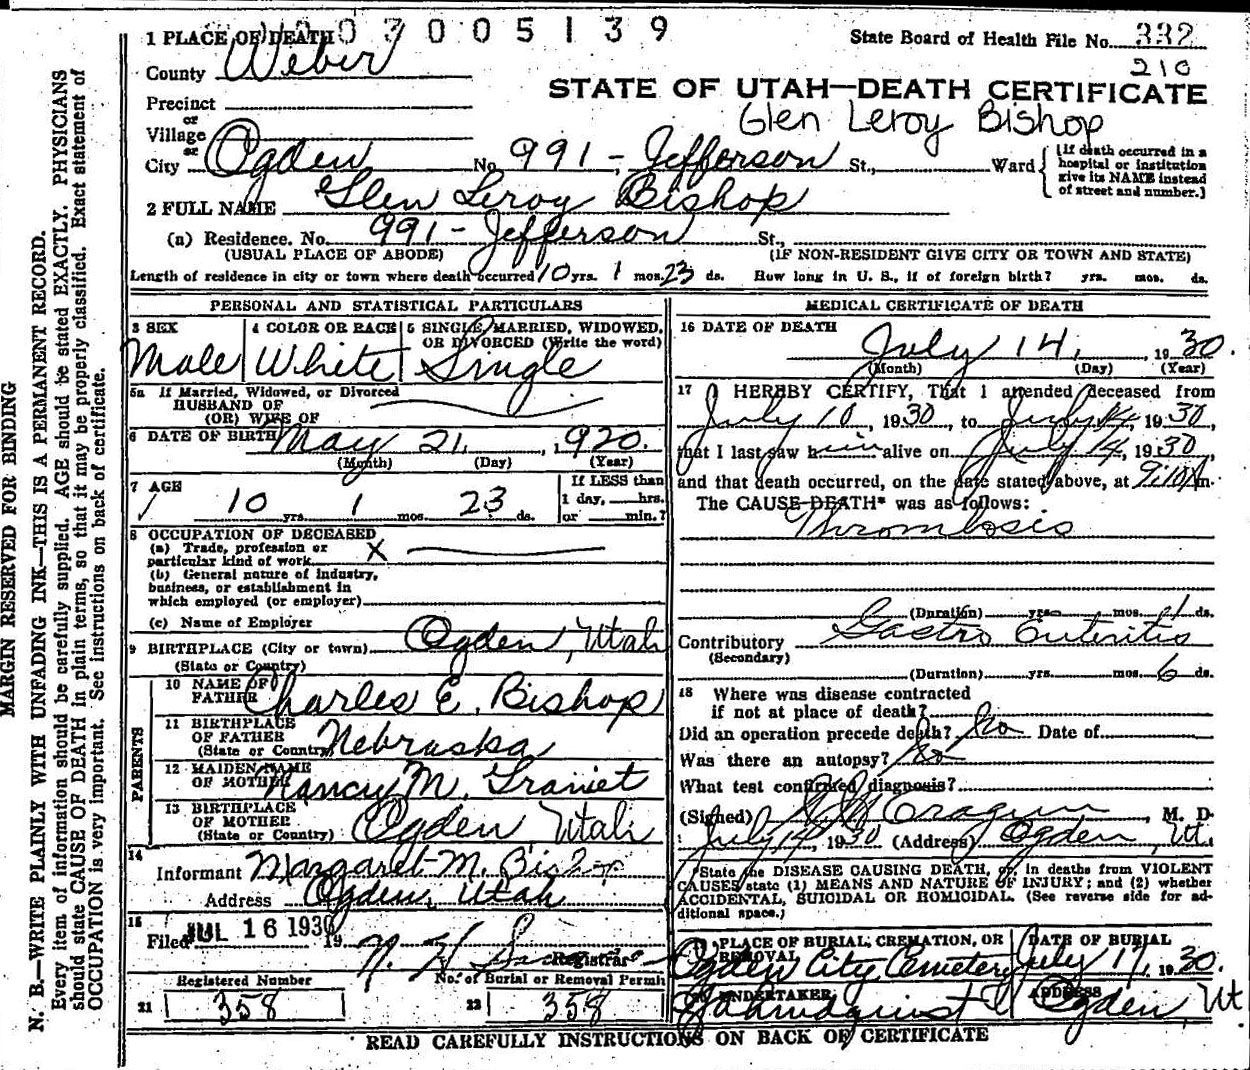 0 3 0 0 5 1 3 9
1 PLACE OF DEATH
State Board of Health File No. 332
County Weber
210
STATE OF UTAH—DEATH CERTIFICATE
Precinct
or
Village
Glen Leroy Bishop
or
City Ogden No. 991 - Jefferson St., Ward
[If death occurred in a hospital or institution give its NAME instead of street and number.]
2 FULL NAME Glen Leroy Bishop
(a) Residence. No. 991 - Jefferson St.,
(USUAL PLACE OF ABODE) (IF NON-RESIDENT GIVE CITY OR TOWN AND STATE)
Length of residence in city or town where death occurred 10 yrs. 1 mos. 23 ds. How long in U. S., if of foreign birth? yrs. mos. ds.
PERSONAL AND STATISTICAL PARTICULARS
3 SEX
Male
4 COLOR OR RACE
White
5 SINGLE, MARRIED, WIDOWED, OR DIVORCED (Write the word)
Single
5a If Married, Widowed, or Divorced
HUSBAND OF
(OR) WIFE OF
6 DATE OF BIRTH May 21, 1920.
(Month) (Day) (Year)
7 AGE
10 yrs. 1 mos. 23 ds.
If LESS than
1 day, hrs.
or min.?
8 OCCUPATION OF DECEASED
(a) Trade, profession or
particular kind of work X
(b) General nature of industry,
business, or establishment in
which employed (or employer)
(c) Name of Employer
9 BIRTHPLACE (City or town) Ogden, Utah
(State or Country)
PARENTS
10 NAME OF
FATHER Charles E. Bishop
11 BIRTHPLACE
OF FATHER
(State or Country) Nebraska
12 MAIDEN NAME
OF MOTHER Nancy M.
13 BIRTHPLACE
OF MOTHER
(State or Country) Ogden Utah
14
Informant Margaret M. Bishop
Address Ogden, Utah
15
Filed JUL 16 1930 19
Registrar
Registered Number
21 358
No. of Burial or Removal Permit
22 358
MEDICAL CERTIFICATE OF DEATH
16 DATE OF DEATH
July 14, 1930.
(Month) (Day) (Year)
17 I HEREBY CERTIFY, That I attended deceased from
July 10, 1930, to July 14, 1930,
that I last saw him alive on July 14, 1930,
and that death occurred, on the date stated above, at 9:10A m.
The CAUSE DEATH* was as follows:
Thrombosis
(Duration) yrs. mos. 1 ds.
Contributory Gastro Enteritis
(Secondary)
(Duration) yrs. mos. 6 ds.
18 Where was disease contracted
if not at place of death?
Did an operation precede death? No Date of
Was there an autopsy? No
What test confirmed diagnosis?
(Signed) Cragun, M. D.
July 14, 1930 (Address) Ogden, Ut.
*State the DISEASE CAUSING DEATH, or, in deaths from VIOLENT
CAUSES, state (1) MEANS AND NATURE OF INJURY; and (2) whether
ACCIDENTAL, SUICIDAL OR HOMICIDAL. (See reverse side for additional space.)
19 PLACE OF BURIAL, CREMATION, OR
REMOVAL
Ogden City Cemetery
DATE OF BURIAL
July 17, 1930.
20 UNDERTAKER
ADDRESS
Ogden, Ut
READ CAREFULLY INSTRUCTIONS ON BACK OF CERTIFICATE
MARGIN RESERVED FOR BINDING
N. B.—WRITE PLAINLY WITH UNFADING INK—THIS IS A PERMANENT RECORD.
Every item of information should be carefully supplied. AGE should be stated EXACTLY. PHYSICIANS
should state CAUSE OF DEATH in plain terms, so that it may be properly classified. Exact statement of
OCCUPATION is very important. See instructions on back of certificate.